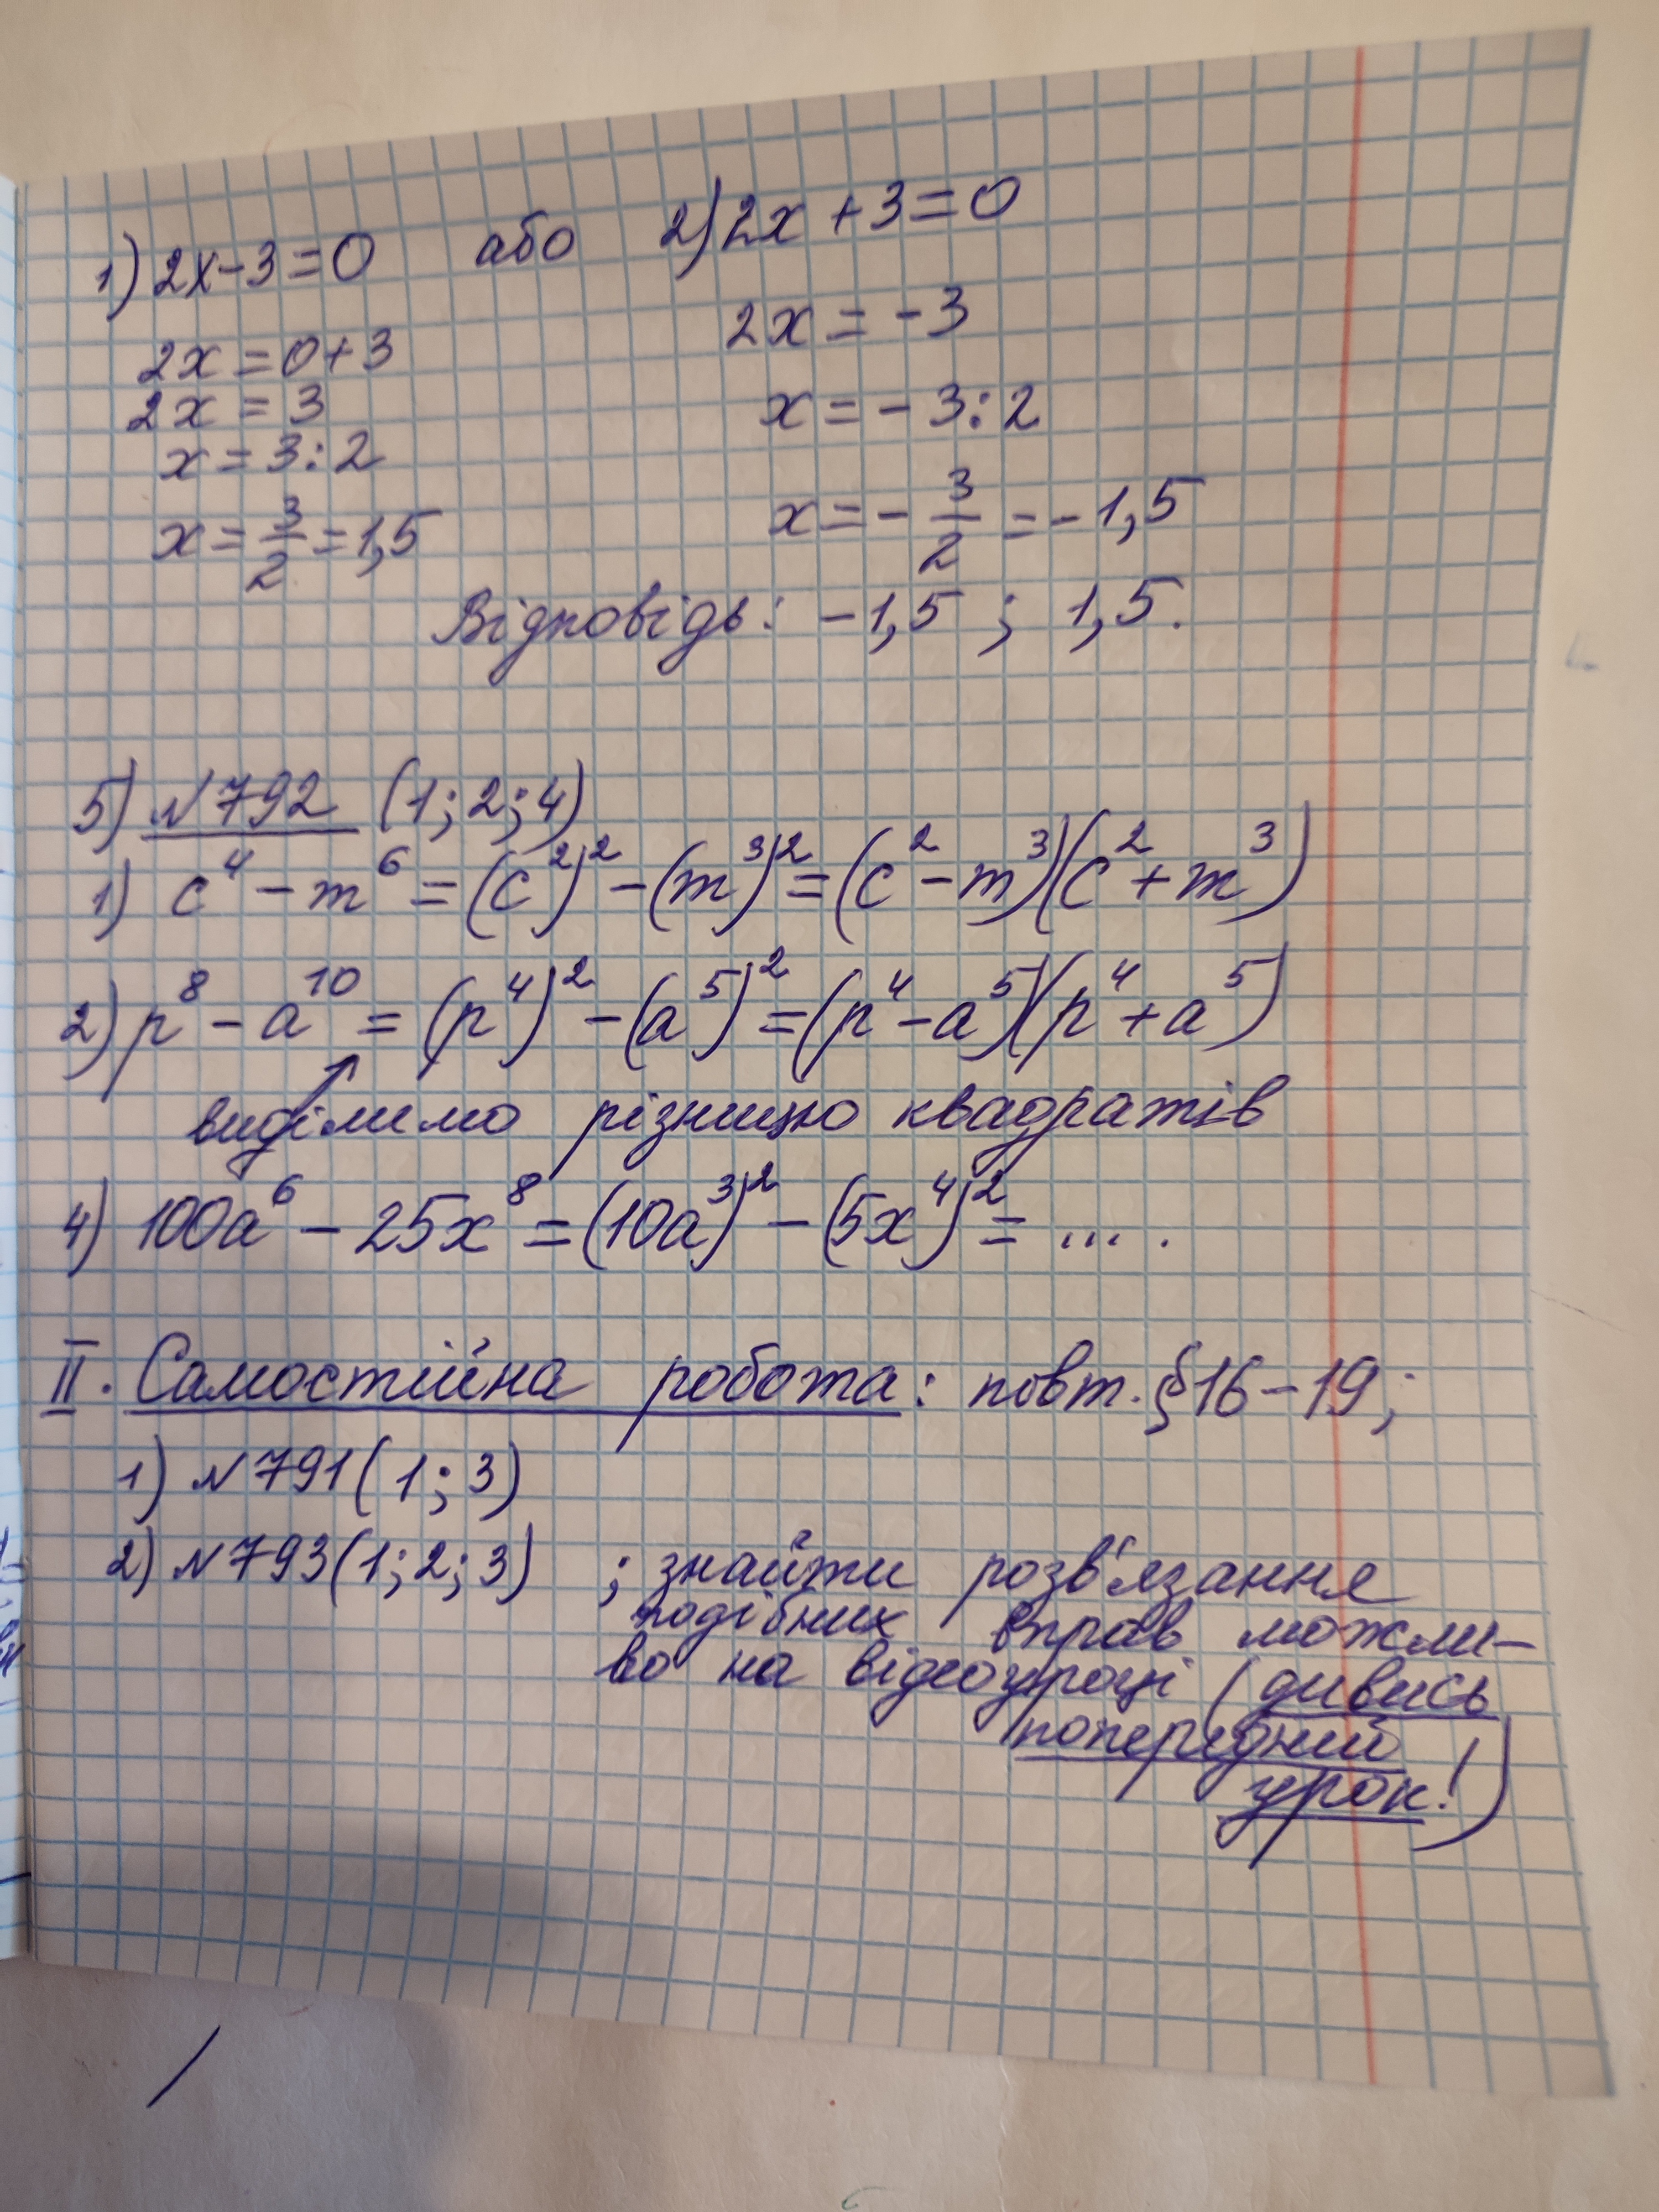 1) 2x-3=0 або 2) 2x+3=0
2x=0+3 2x=-3
2x=3
x=3:2 x=-3:2
x=3/2=1,5 x=-3/2=-1,5
Відповідь: -1,5 ; 1,5.
5) №792 (1; 2; 4)
1) c⁴-m⁶=(c²)²-(m³)²=(c²-m³)(c²+m³)
2) p⁸-a¹⁰=(p⁴)²-(a⁵)²=(p⁴-a⁵)(p⁴+a⁵)
виділимо різницю квадратів
4) 100a⁶-25x⁸=(10a³)²-(5x⁴)²= ... .
II. Самостійна робота: повт. §16-19;
1) №791(1; 3)
2) №793(1; 2; 3) ; знайти розв'язання
подібних вправ можли-
во на відеоуроці (дивись
попередній
урок!)